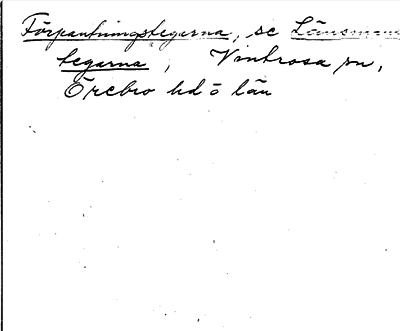 Förpantningstegarna, se Länsmans
tegarna, Vintrosa sn,
Örebro hd ö län